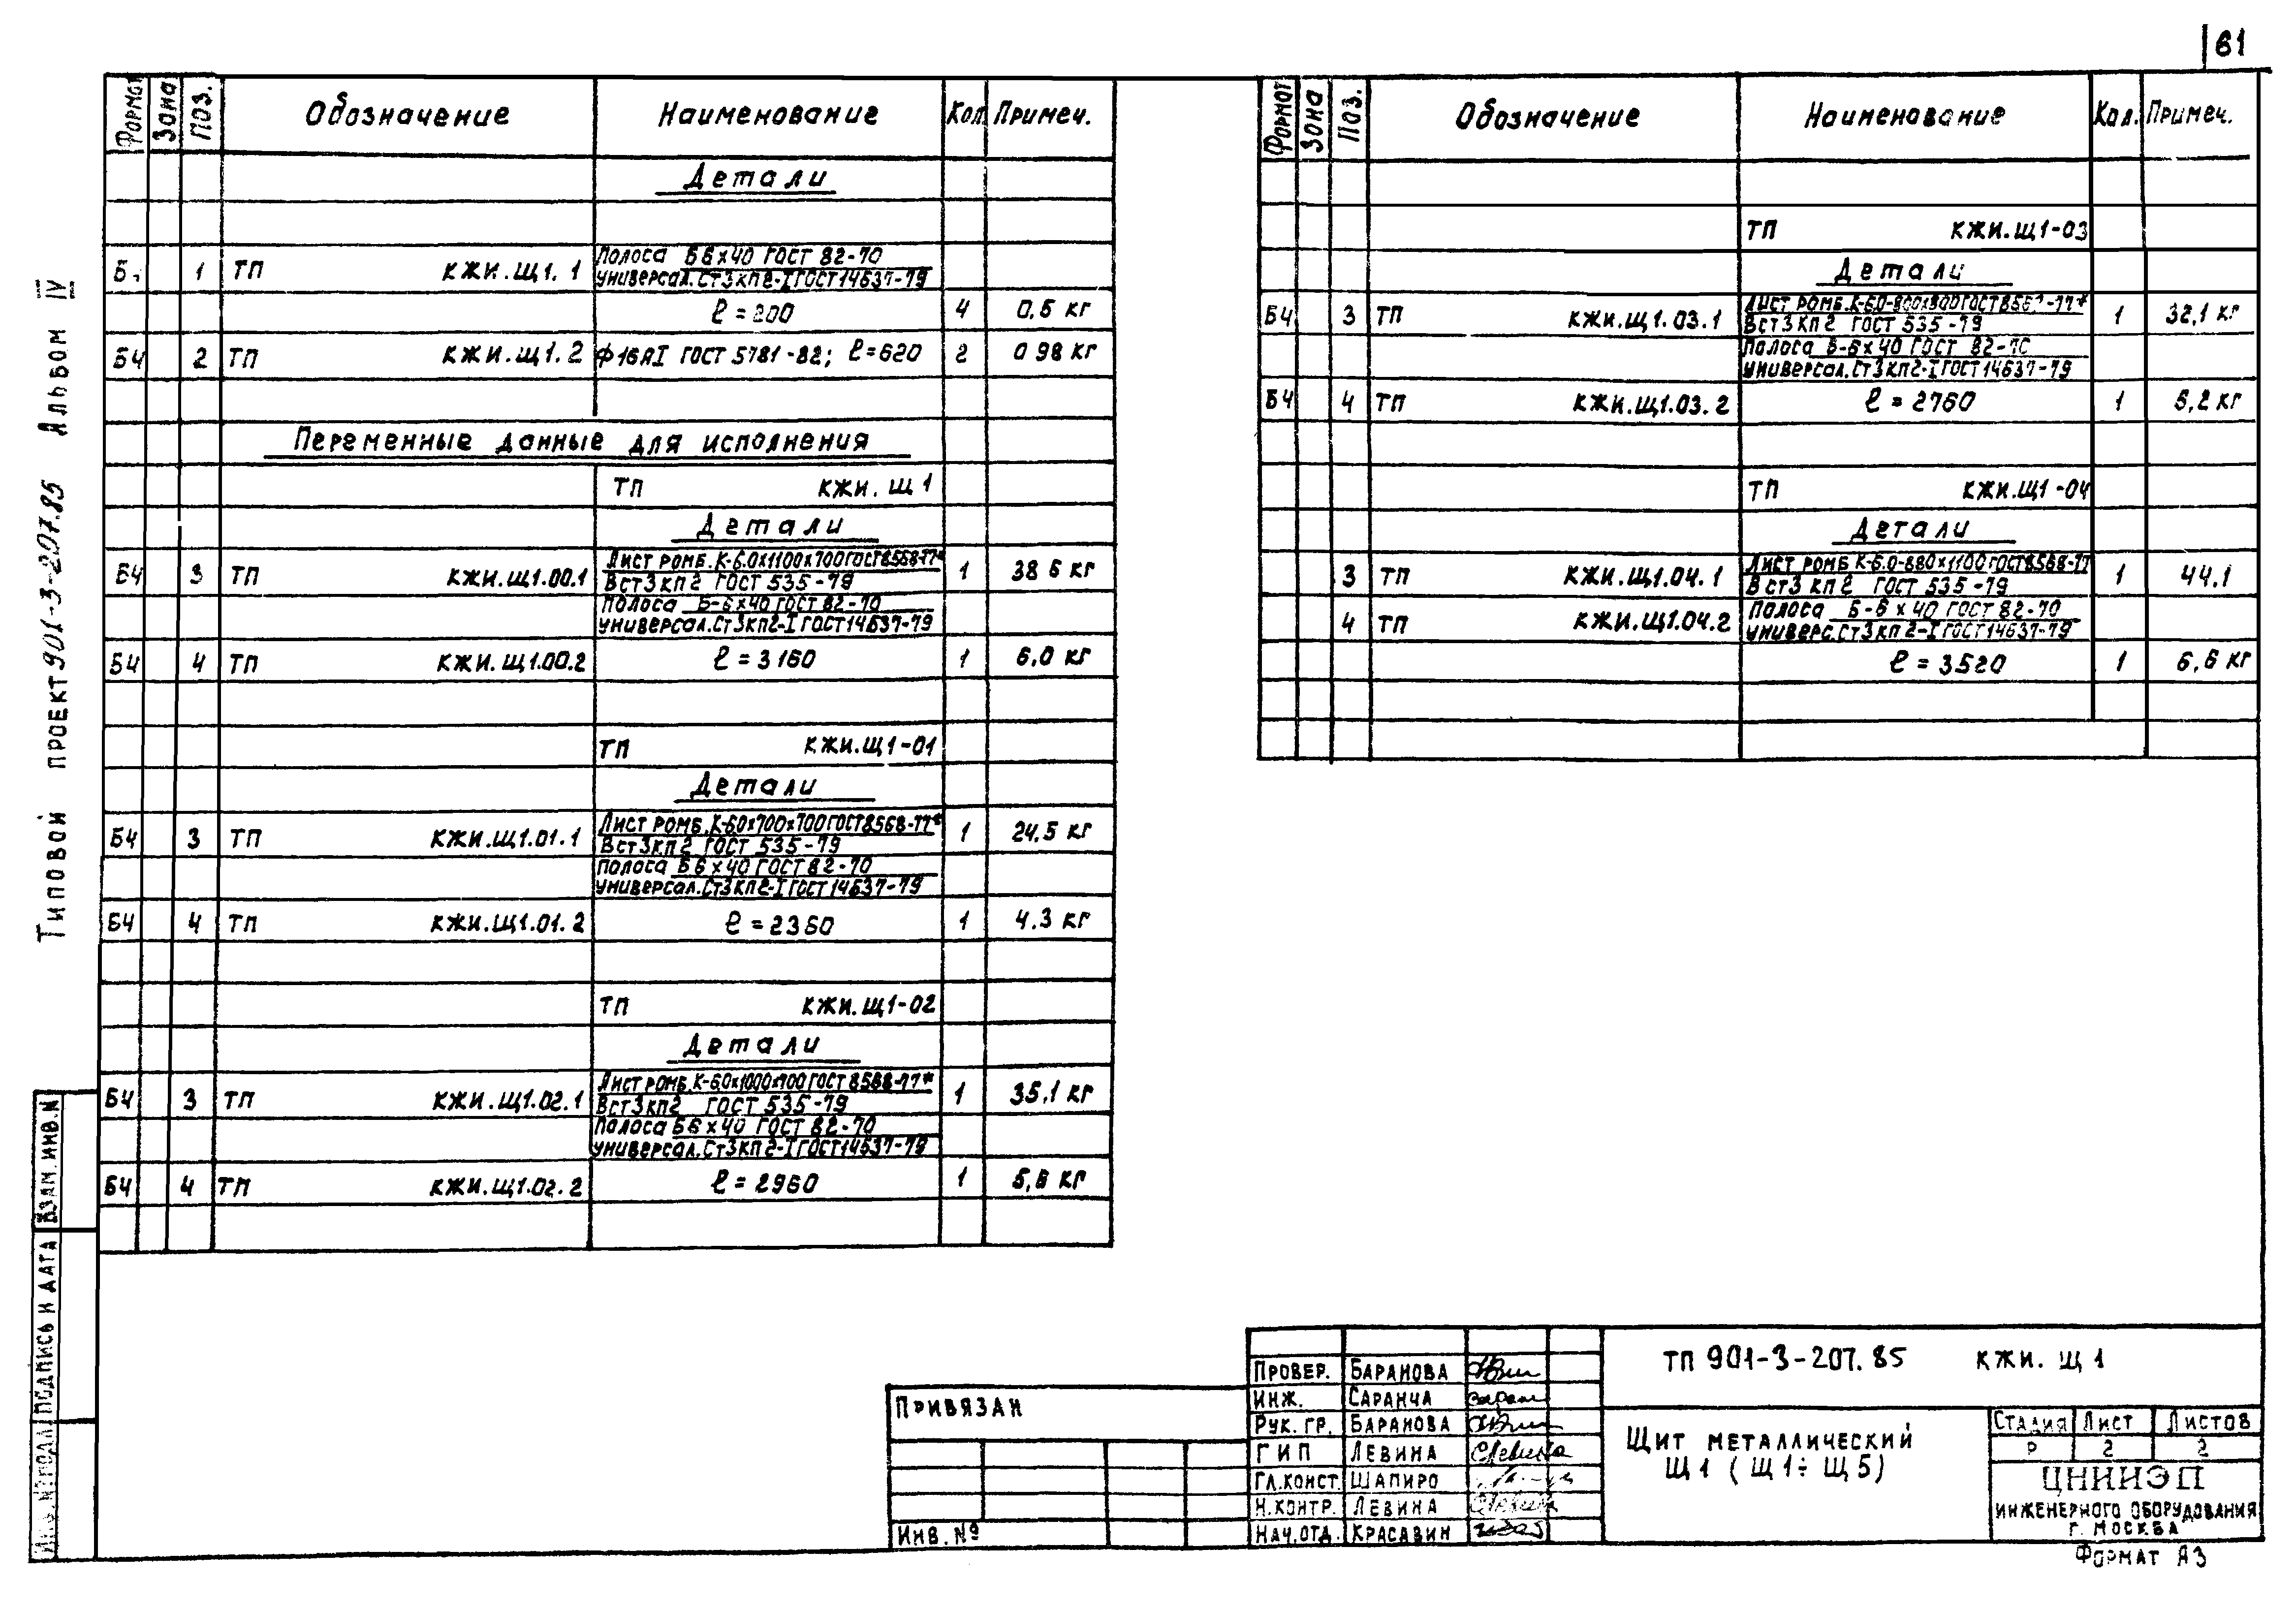 61
Типовой проект 901-3-207.85 Альбом IV
Формат Зона Поз. Обозначение Наименование Кол. Примеч.
Детали
1 ТП КЖИ.Щ1.1 Полоса Б6х40 ГОСТ 82-70
универсал.Ст3кп2-I ГОСТ14637-79
ℓ=200 4 0,5 кг
БЧ 2 ТП КЖИ.Щ1.2 ф16АI ГОСТ 5781-82; ℓ=620 2 0 98 кг
Переменные данные для исполнения
ТП КЖИ.Щ1
Детали
БЧ 3 ТП КЖИ.Щ1.00.1 Лист ромб.К-6.0х1100х700ГОСТ8568-77*
Вст3кп2 ГОСТ 535-79 1 38 6 кг
Полоса Б-6х40 ГОСТ 82-70
универсал.Ст3кп2-I ГОСТ14637-79
БЧ 4 ТП КЖИ.Щ1.00.2 ℓ=3160 1 6,0 кг
ТП КЖИ.Щ1-01
Детали
БЧ 3 ТП КЖИ.Щ1.01.1 Лист ромб.К-6.0х700х700ГОСТ8568-77*
Вст3кп2 ГОСТ 535-79 1 24,5 кг
Полоса Б6х40 ГОСТ 82-70
универсал.Ст3кп2-I ГОСТ14637-79
БЧ 4 ТП КЖИ.Щ1.01.2 ℓ=2360 1 4.3 кг
ТП КЖИ.Щ1-02
Детали
БЧ 3 ТП КЖИ.Щ1.02.1 Лист ромб.К-6.0х1000х700ГОСТ 8568-77*
Вст3кп2 ГОСТ 535-79 1 35,1 кг
Полоса Б6х40 ГОСТ 82-70
универсал.Ст3кп2-I ГОСТ14637-79
БЧ 4 ТП КЖИ.Щ1.02.2 ℓ=2960 1 5,6 кг
Формат Зона Поз. Обозначение Наименование Кол. Примеч.
ТП КЖИ.Щ1-03
Детали
БЧ 3 ТП КЖИ.Щ1.03.1 Лист ромб.К-6.0-800х800ГОСТ8568-77*
Вст3кп2 ГОСТ 535-79 1 32,1 кг
Полоса Б-6х40 ГОСТ 82-70
универсал.Ст3кп2-I ГОСТ14637-79
БЧ 4 ТП КЖИ.Щ1.03.2 ℓ=2760 1 5,2 кг
ТП КЖИ.Щ1-04
Детали
3 ТП КЖИ.Щ1.04.1 Лист ромб К-6.0-880х1100ГОСТ8568-77
Вст3кп2 ГОСТ 535-79 1 44,1
4 ТП КЖИ.Щ1.04.2 Полоса Б-6х40 ГОСТ 82-70
универс.Ст3кп2-I ГОСТ14637-79
ℓ=3520 1 6,6 кг
Взам.инв.N
Подпись и дата
Привязан
Инв. №
Провер. Баранова
Инж. Саранча
Рук. гр. Баранова
ГИП Левина
Гл.конст. Шапиро
Н.контр. Левина
Нач.отд. Красавин
ТП 901-3-207.85 КЖИ. Щ1
Щит металлический
Щ1 (Щ1÷Щ5)
Стадия Лист Листов
Р 2 2
ЦНИИЭП
инженерного оборудования
г. Москва
Формат А3